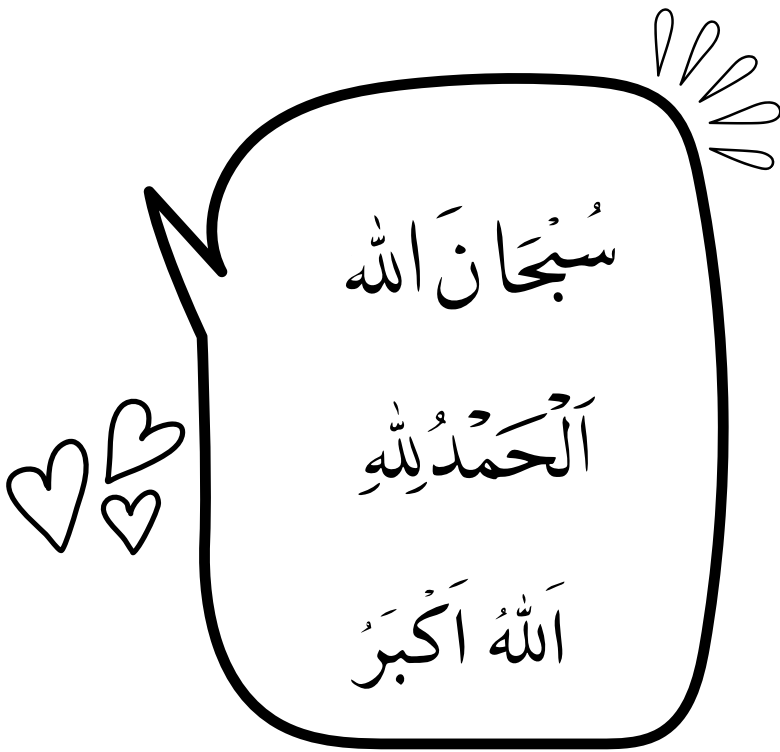 سُبْحَانَ الله
اَلْحَمْدُ لِلّٰهِ
اَللّٰهُ اَكْبَرُ